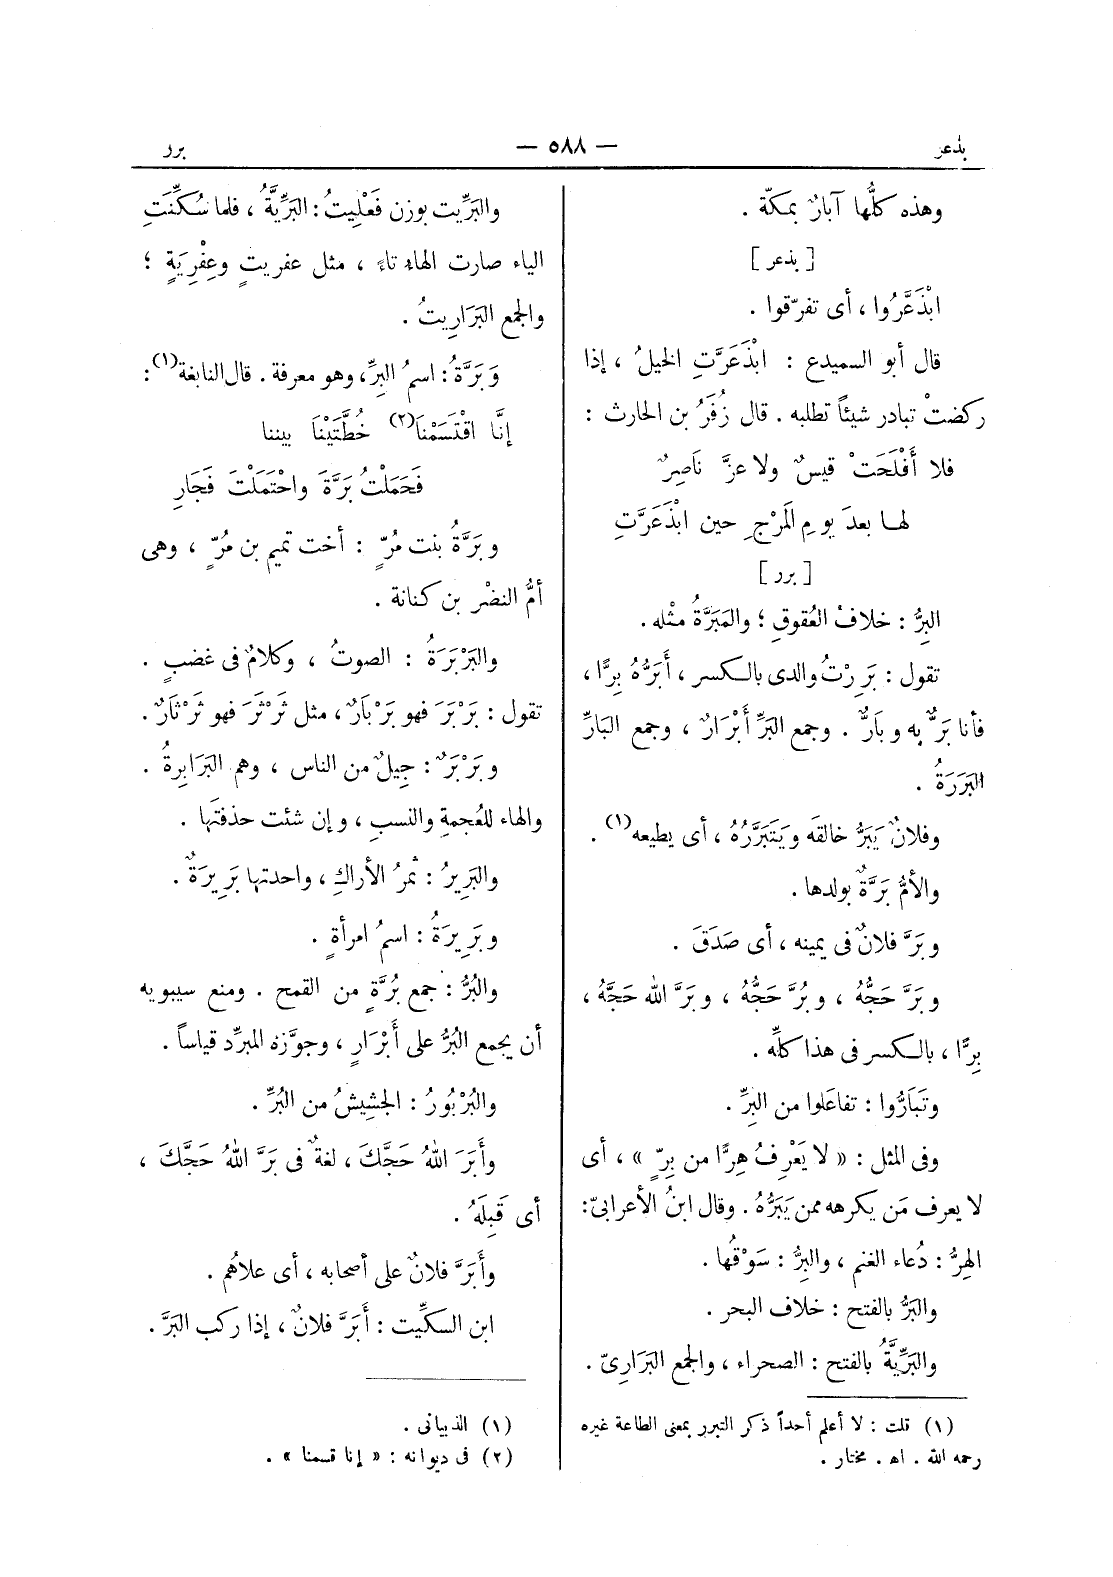 بذعر — ٥٨٨ — برر
وهذه كلُّها آبارٌ بمكّة .
[ بذعر ]
ابْذَعَرُّوا ، أى تفرّقوا .
قال أبو السميدع : ابْذَعَرَّتِ الخيلُ ، إذا
ركضتْ تبادر شيئاً تطلبه . قال زُفَرُ بن الحارث :
فلا أَفْلَحَتْ قيسٌ ولا عزَّ نَاصِرٌ
لها بعدَ يومِ المَرْجِ حين ابْذَعَرَّتِ
[ برر ]
البِرُّ : خلافُ العُقوقِ ؛ والمَبَرَّةُ مثْله .
تقول : بَرِرْتُ والدى بالكسر ، أَبَرُّهُ بِرًّا ،
فأنا بَرٌّ به وبَارٌّ . وجمع البَرِّ أَبْرَارٌ ، وجمع البَارِّ
البَرَرَةُ .
وفلانٌ يَبَرُّ خالقَه ويَتَبَرَّرُهُ ، أى يطيعه (١) .
والأمُّ بَرَّةٌ بولدها .
وبَرَّ فلانٌ فى يمينه ، أى صَدَقَ .
وبَرَّ حَجُّهُ ، وبُرَّ حَجُّهُ ، وبَرَّ الله حَجَّهُ ،
بِرًّا ، بالكسر فى هذا كلِّه .
وتَبَارُّوا : تفاعَلوا من البِرِّ .
وفى المثل : « لا يَعْرِفُ هِرًّا من بِرٍّ » ، أى
لا يعرف مَن يكرهه ممن يَبَرُّهُ . وقال ابنُ الأعرابىّ :
الهِرُّ : دُعاء الغنم ، والبِرُّ : سَوْقُها .
والبَرُّ بالفتح : خلاف البحر .
والبَرِّيَّةُ بالفتح : الصحراء ، والجمع البَرَارِىّ .
(١) قلت : لا أعلم أحداً ذكر التبرر بمعنى الطاعة غيره
رحمه الله . اه . مختار .
والبَرِّيت بوزن فَعْلِيتُ : البَرِّيَّةُ ، فلما سُكِّنَتِ
الياء صارت الهاء تاءً ، مثل عفريتٍ وعِفْرِيَةٍ ؛
والجمع البَرَارِيتُ .
وَبَرَّةُ : اسمُ البِرِّ ، وهو معرفة . قال النابغة (١) :
إنَّا اقْتَسَمْنَا (٢) خُطَّتَيْنَا بيننا
فَحَمَلْتُ بَرَّةَ واحْتَمَلْتَ فَجَارِ
وبَرَّةُ بنت مُرٍّ : أخت تميم بن مُرٍّ ، وهى
أمُّ النضْر بن كنانة .
والبَرْبَرَةُ : الصوتُ ، وكلامٌ فى غضبٍ .
تقول : بَرْبَرَ فهو بَرْبَارٌ ، مثل ثَرْثَرَ فهو ثَرْثَارٌ .
وبَرْبَرٌ : جِيلٌ من الناس ، وهم البَرَابِرةُ .
والهاء للعُجمةِ والنسبِ ، وإن شئت حذفتَها .
والبَرِيرُ : ثمرُ الأراكِ ، واحدتها بَرِيرَةٌ .
وبَرِيرَةُ : اسمُ امرأةٍ .
والبُرُّ : جمع بُرَّةٍ من القمح . ومنع سيبويه
أن يجمع البُرُّ على أَبْرَارٍ ، وجوَّزه المبرِّد قياساً .
والبُرْبُورُ : الجشِيشُ من البُرِّ .
وأَبَرَ اللهُ حَجَّكَ ، لغةٌ فى بَرَّ اللهُ حَجَّكَ ،
أى قَبِلَهُ .
وأَبَرَّ فلانٌ على أصحابه ، أى علاهُم .
ابن السكِّيت : أَبَرَّ فلانٌ ، إذا ركب البَرَّ .
(١) الذبيانى .
(٢) فى ديوانه : « إنا قسمنا » .